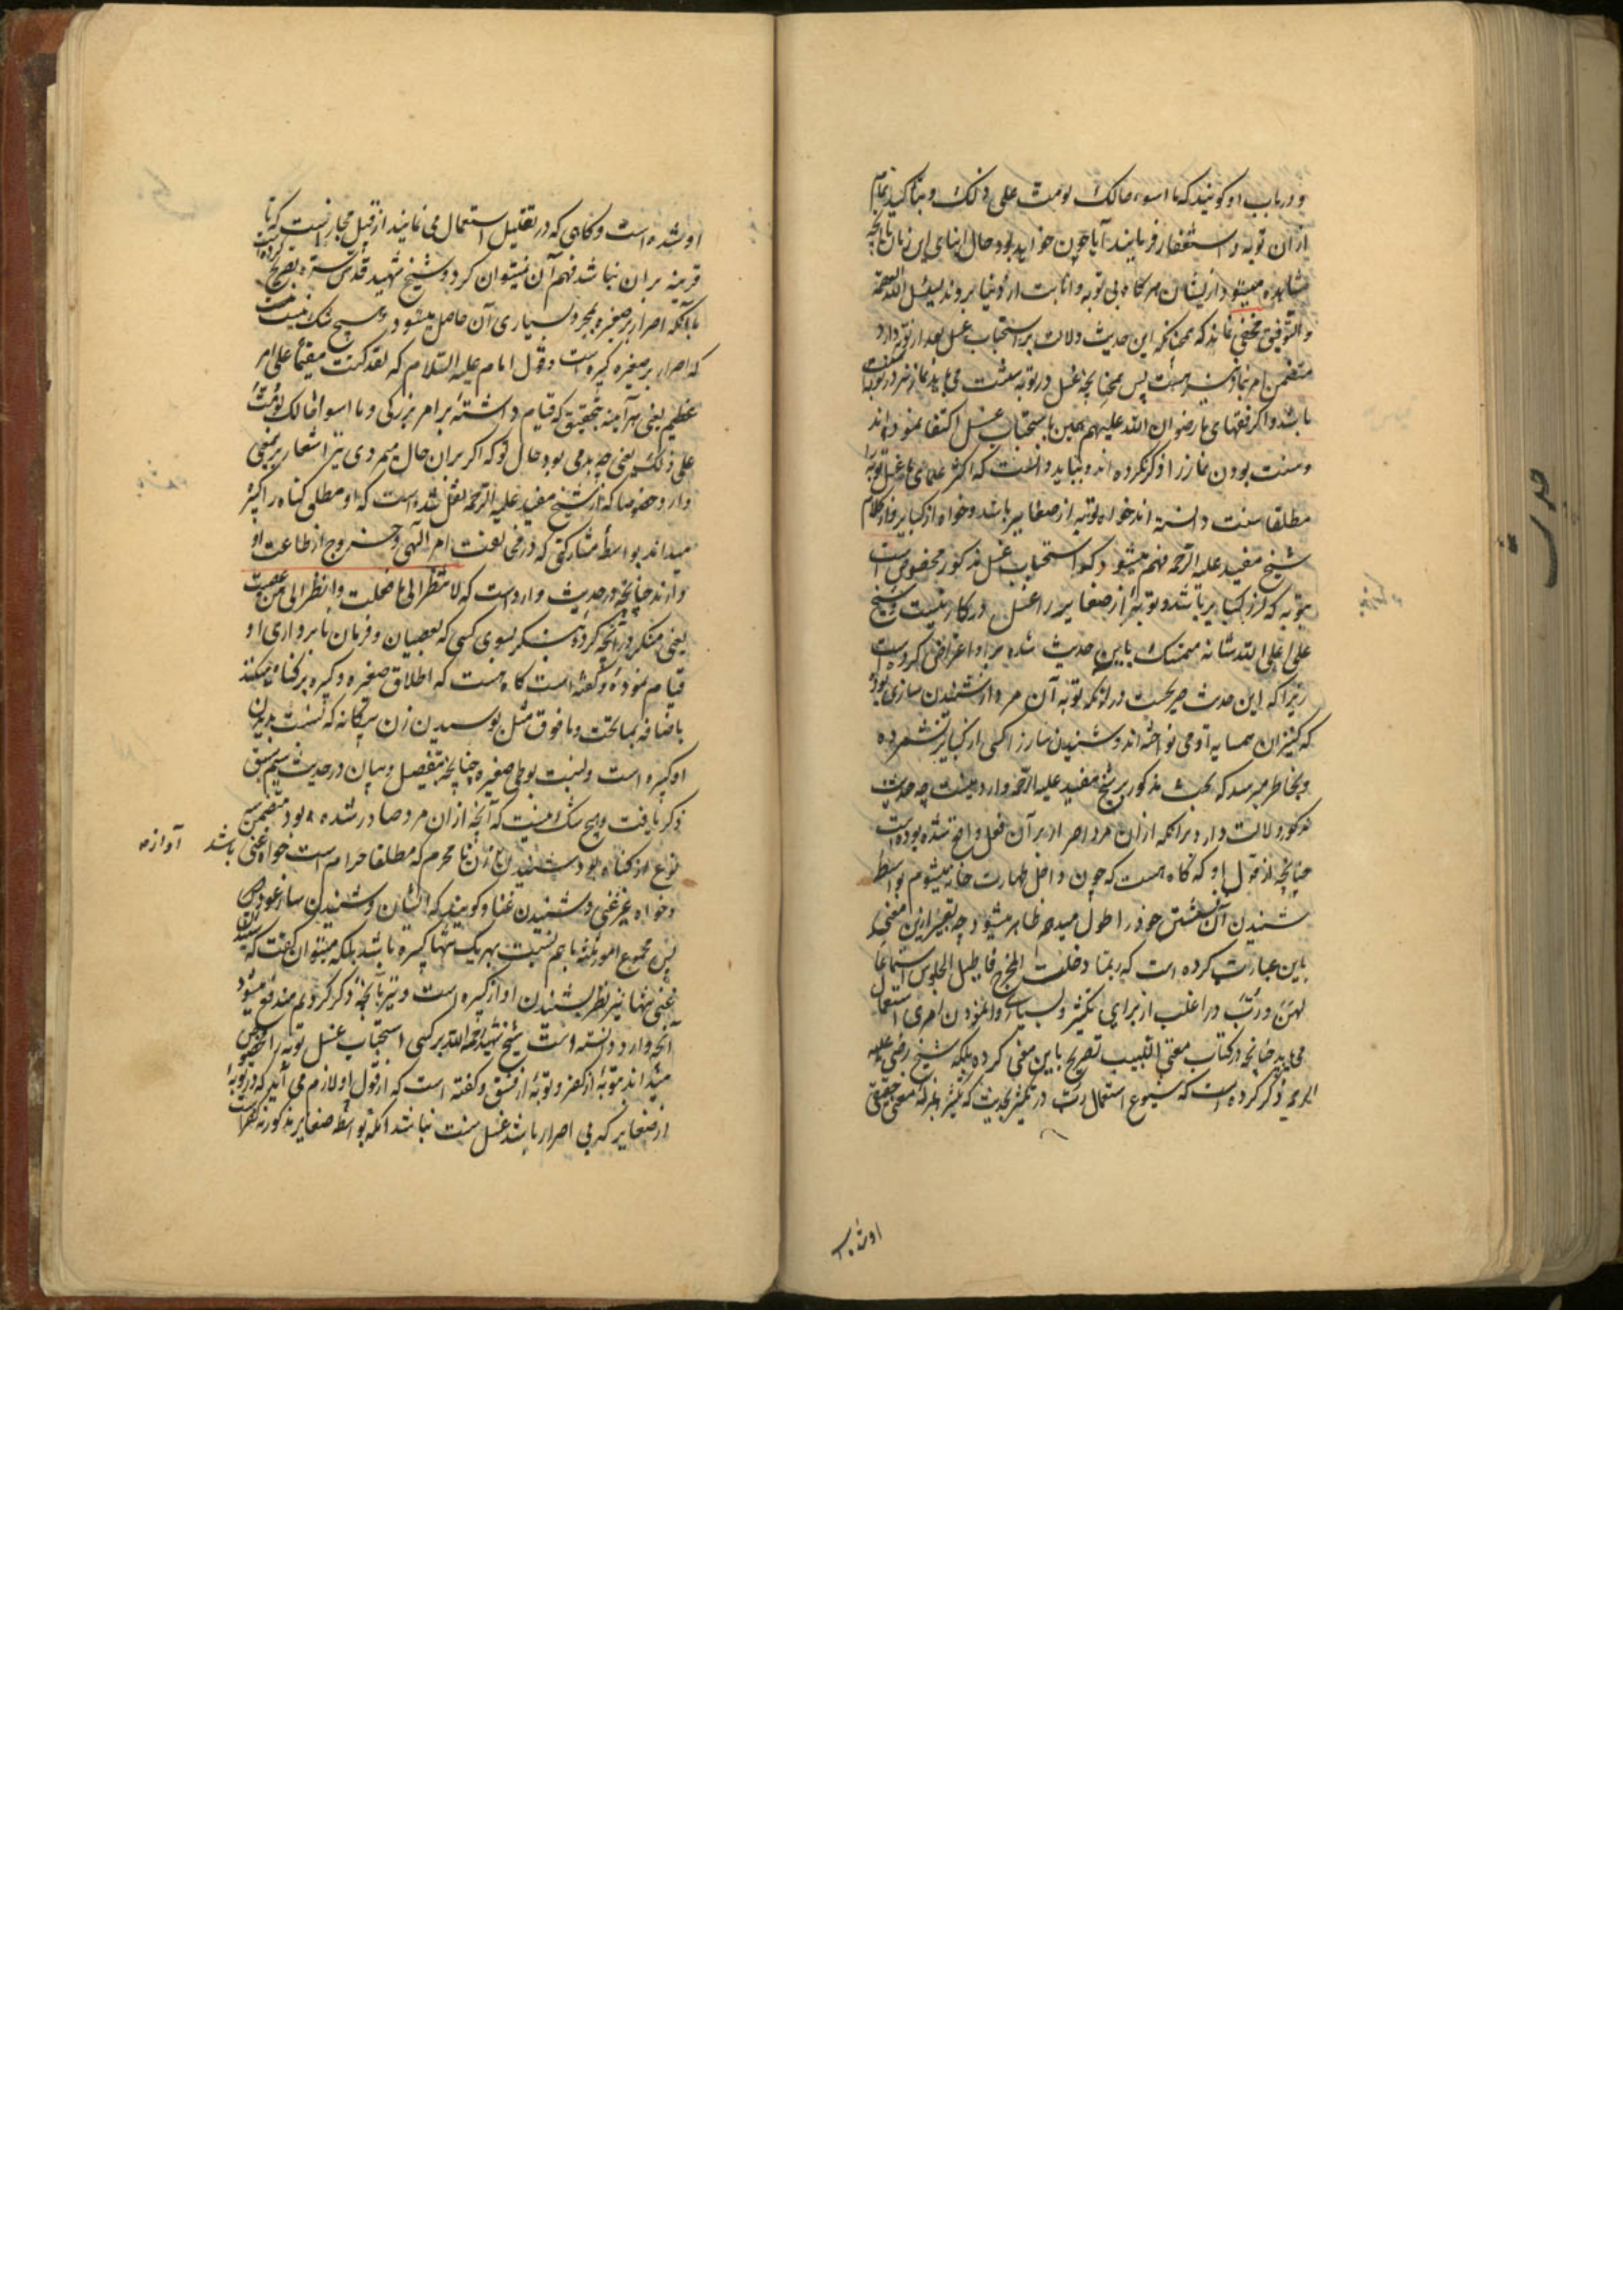 و در باب او کویند که ما اسوء حالک لو مت علی ذلک و بتاکید تمام
از ان توبه و استغفار فرمایند آیا چون خواهد بود حال ابنای این زمان تا آنچه
مشاهده میشود از یشان هر کاه بی توبه و انابت از دنیا بروند نسئل الله العصمة
و التوفیق مخفی نماند که همچنانکه این حدیث دلالت بر استحباب غسل بعد از توبه دارد
متضمن امر بنماز نیز هست پس همچنانچه غسل در توبه سنت می باید نماز نیز در توبه سنت
باشد و اکر فقهای ما رضوان الله علیهم همین باستحباب غسل اکتفا نموده اند
و سنت بودن نماز را ذکر نکرده اند و بباید دانست که اکثر علمای ما غسل توبه را
مطلقا سنت دانسته اند خواه توبه از صغایر باشد و خواه از کبایر و از کلام
شیخ مفید علیه الرحمه فهم میشود که استحباب غسل مذکور مخصوص است
بتوبه که از کبایر باشد و توبهٔ از صغایر را غسل در کار نیست و شیخ
علی اعلی الله شانه متمسک باین حدیث شده بر او اعتراض کرده است
زیرا که این حدیث صریحست در انکه توبه آن مرد از شنیدن سازی بود
که کنیزان همسایه او می نواخته اند و شنیدن ساز را کسی از کبایر نشمرده
و بخاطر میرسد که بحث مذکور بر شیخ مفید علیه الرحمه وارد نیست چه حدیث
مذکور دلالت دارد برانکه ازان مرد اصرار بر آن فعل واقع شده بوده است
چنانچه از قول او که کاه هست که چون داخل طهارت خانه میشوم بواسطهٔ
شنیدن آن نشستن خود را طول میدهم ظاهر میشود چه تعبیر ازین معنی
باین عبارت کرده است که ربما دخلت المخرج فاطیل الجلوس استماعا
لهن و رب در اغلب از برای تکثیر و بسیاری وانمودن امری استعمال
می یابد چنانچه در کتاب مغنی اللبیب تصریح باین معنی کرده بلکه شیخ رضی علیه
الرحمه ذکر کرده است که شیوع استعمال رب در تکثیر بحدیست که تکثیر بمنزله معنی حقیقی
او شده است
او شده است و کاهی که در تقلیل استعمال می نمایند از قبیل مجاز است که تا
قرینه بران نباشد فهم آن نمیتوان کرد و شیخ شهید قدس سره تصریح کرده است
بآنکه اصرار بر صغیره بمجرد بسیاری آن حاصل میشود و هیچ شک نیست
که اصرار بر صغیره کبیره است و قول امام علیه السلام که لقد کنت مقیما علی امر
عظیم یعنی هر آینه بتحقیق که قیام داشتهٔ بر امر بزرکی و ما اسوا حالک لو مت
علی ذلک یعنی چه بد می بود حال تو که اکر بران حال میمردی نیز اشعار برین معنی
دارد خصوصا که از شیخ مفید علیه الرحمه نقل شده است که او مطلق کناه را کبیره
میداند بواسطهٔ مشارکتی که در مخالفت امر الهی و خروج از طاعت او
دارند چنانچه در حدیث وارد است که لا تنظر الی ما فعلت و انظر الی من عصیت
یعنی منکر در آنچه کردهٔ بنکر بسوی کسی که بعصیان و فرمان نابرداری او
قیام نمودهٔ و کفته است کاه هست که اطلاق صغیره و کبیره بر کناه میکنند
باضافه بما تحت و ما فوق مثل بوسیدن زن بیکانه که نسبت بدیدن
او کبیره است و نسبت بوطی صغیره چنانچه تفصیل و بیان در حدیث سیم سبق
ذکر یافت و هیچ شک نیست که آنچه ازان مرد صادر شده بود متضمن سه
نوع از کناه بود شنیدن آواز زن نا محرم که مطلقا حرام است خواه غنی باشد
آوازه
و خواه غیر غنی و شنیدن غنا و کویندکی ایشان و شنیدن ساز عود
پس مجموع امور ثلثه با هم نسبت بهر یک تنها کبیره باشد بلکه میتوان کفت که شنیدن
غنی تنها نیز نظر بشنیدن آواز کبیره است و نیز بآنچه ذکر کردیم مندفع میشود
آنچه وارد دانسته است شیخ شهید رحمه الله بر کسی استحباب غسل توبه را مخصوص
میداند بتوبهٔ از کفر و توبهٔ از فسق و کفته است که از قول او لازم می آید که در توبهٔ
از صغایر که بی اصرار باشد غسل سنت نباشد انکه بواسطه صغایر مذکوره